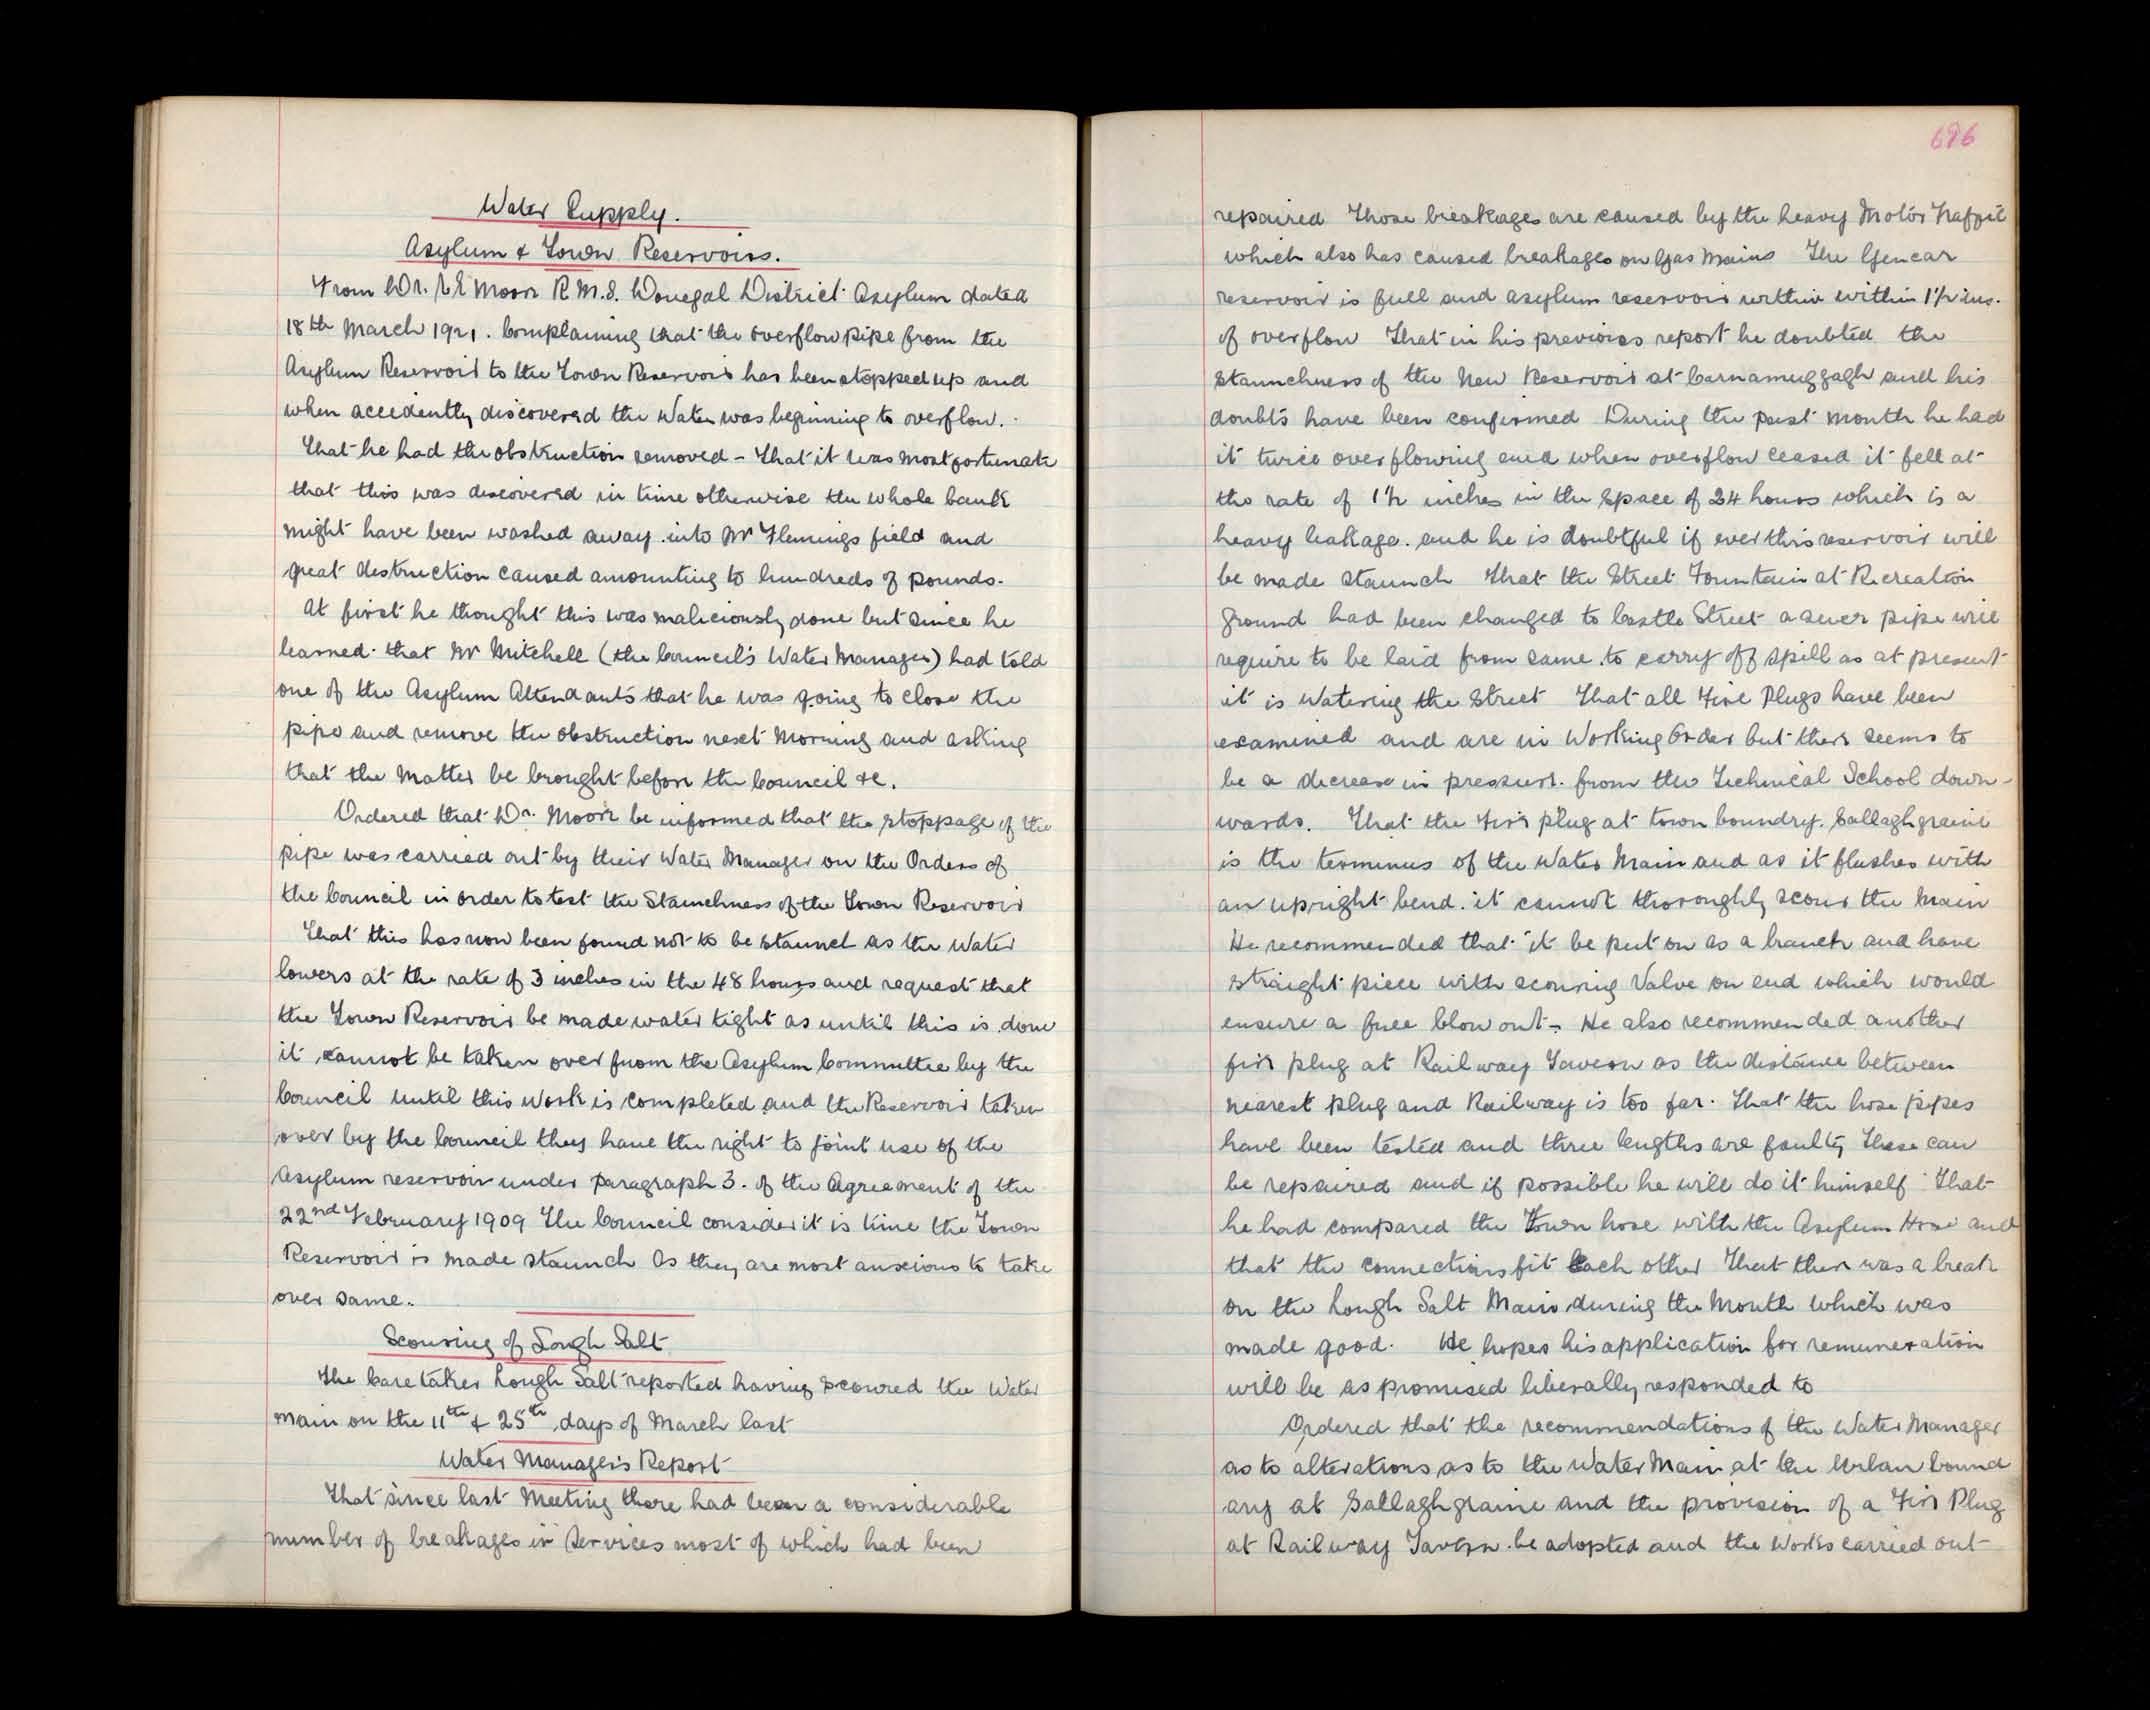 Water Supply.
Asylum & Town Reservoirs.
From Dr. E Moore R.M.S. Donegal District Asylum dated
18th March 1921. Complaining that the overflow pipe from the
Asylum Reservoir to the Town Reservoir has been stopped up and
when accidently discovered the Water was beginning to overflow.
That he had the obstruction removed - That it was most fortunate
that this was discovered in time otherwise the whole bank
might have been washed away into Mr Flemings field and
great destruction caused amounting to hundreds of pounds.
At first he thought this was maliciously done but since he
learned that Mr Mitchell (the Council's Water Manager) had told
one of the Asylum Attendants that he was going to close the
pipe and remove the obstruction next Morning and asking
that the Matter be brought before the Council &c.
Ordered that Dr. Moore be informed that the stoppage of the
pipe was carried out by their Water Manager on the Orders of
the Council in order to test the Staunchness of the Town Reservoir
That this has now been found not to be staunch as the Water
lowers at the rate of 3 inches in the 48 hours and request that
the Town Reservoir be made water tight as until this is done
it cannot be taken over from the Asylum Committee by the
Council until this Work is completed and the Reservoir taken
over by the Council they have the right to joint use of the
Asylum reservoir under paragraph 3. of the Agreement of the
22nd February 1909 The Council consider it is time the Town
Reservoir is made staunch as they are most anxious to take
over same.
Scouring of Lough Salt
The Caretaker Lough Salt reported having scoured the Water
main on the 11th & 25th days of March last
Water Manager's Report
That since last Meeting there had been a considerable
number of breakages in Services most of which had been
696
repaired Those breakages are caused by the heavy Motor traffic
which also has caused breakages on Gas Mains The Glencar
reservoir is full and asylum reservoir within within 1½ ins.
of overflow That in his previous report he doubted the
staunchness of the New Reservoir at Carnamuggagh and his
doubts have been confirmed During the past month he had
it twice overflowing and when overflow ceased it fell at
the rate of 1½ inches in the space of 24 hours which is a
heavy leakage. and he is doubtful if ever this reservoir will
be made staunch That the Street Fountain at Recreation
ground had been changed to Castle Street a sewer pipe will
require to be laid from same to carry off spill as at present
it is Watering the Street That all Fire Plugs have been
examined and are in Working Order but there seems to
be a decrease in pressure from the Technical School down-
wards. That the Fire plug at town boundry. Sallaghgraine
is the terminus of the Water Main and as it flushes with
an upright bend. it cannot thoroughly scour the Main
He recommended that it be put on as a branch and have
straight piece with scouring Valve on end which would
ensure a free blow out - He also recommended another
fire plug at Railway Tavern as the distance between
nearest plug and Railway is too far. That the hose pipes
have been tested and three lengths are faulty these can
be repaired and if possible he will do it himself That
he had compared the Town hose with the Asylum Hose and
that the connections fit Each other That there was a break
on the Lough Salt Main during the Month which was
made good. He hopes his application for remuneration
will be as promised liberally responded to
Ordered that the recommendations of the Water Manager
as to alterations as to the Water Main at the Urban bound
ary at Sallaghgraine and the provision of a Fire Plug
at Railway Tavern be adopted and the Works carried out